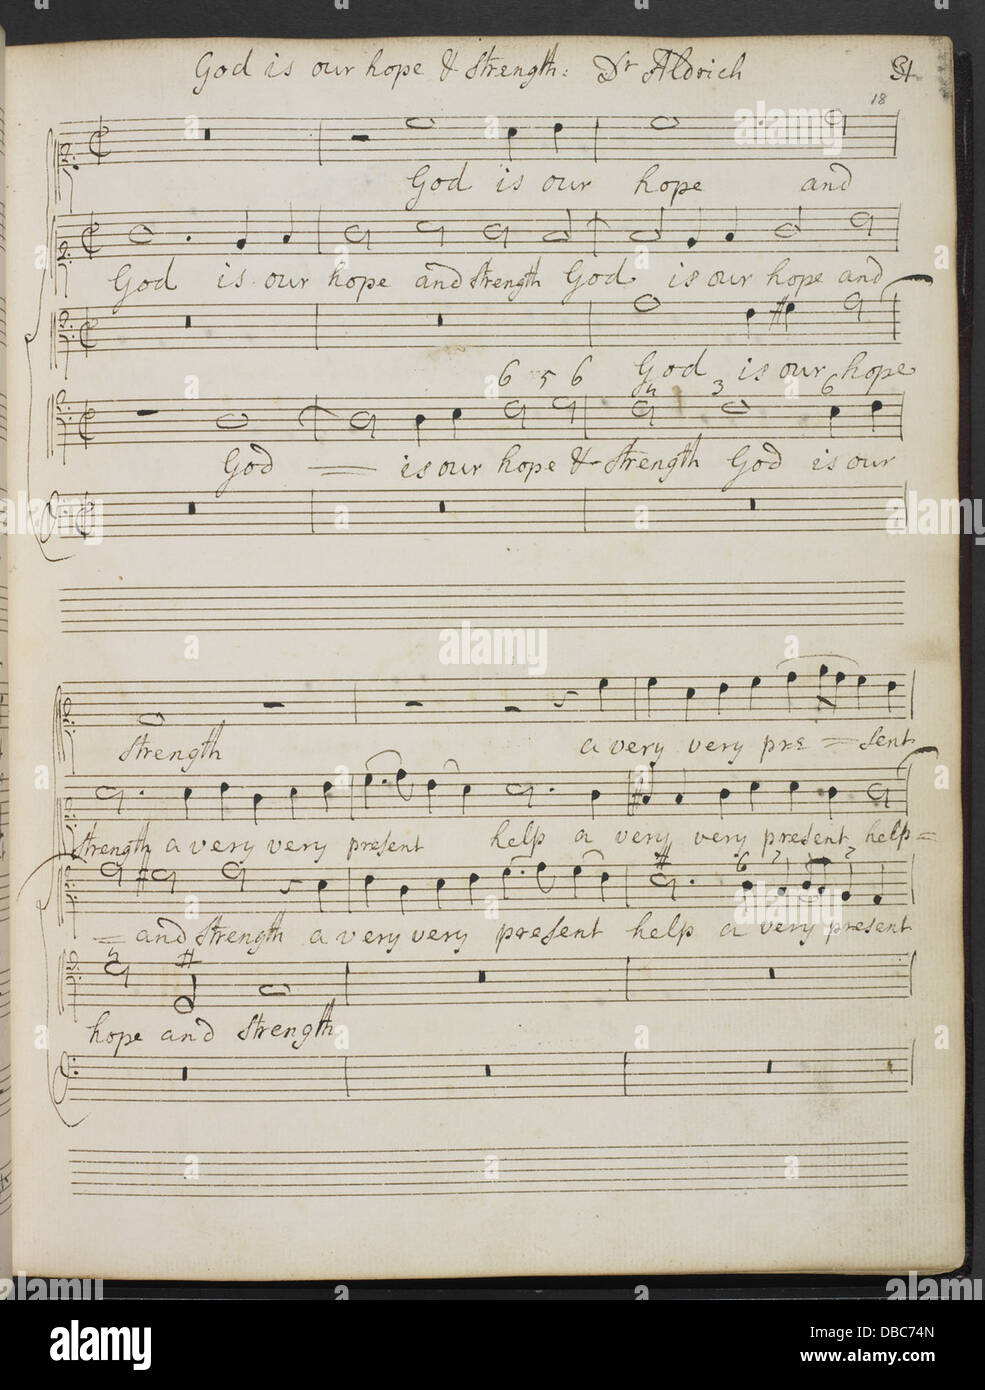 God is our hope & Strength: Dr Aldrich
18
God is our hope and
God is our hope and Strength God is our hope and
6 5 6 God is our hope
4 3 6
God = is our hope & Strength God is our
Strength a very very pre = sent
Strength a very very present help a very very present help =
6 7 7
= and Strength a very very present help a very present
hope and Strength
alamy
alamy
alamy
Image ID: DBC74N
www.alamy.com